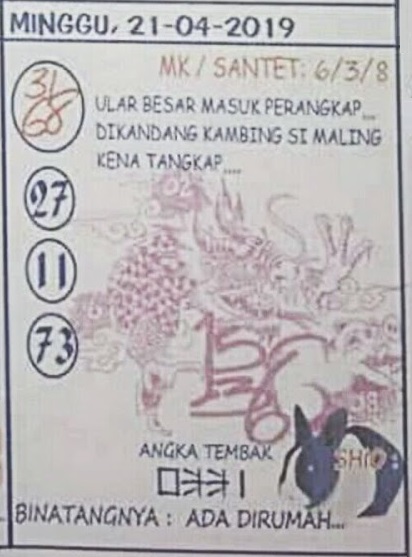 MINGGU, 21-04-2019
MK / SANTET: 6/3/8
31
68
ULAR BESAR MASUK PERANGKAP....
DIKANDANG KAMBING SI MALING
KENA TANGKAP....
27
11
73
ANGKA TEMBAK
SHIO
BINATANGNYA : ADA DIRUMAH...